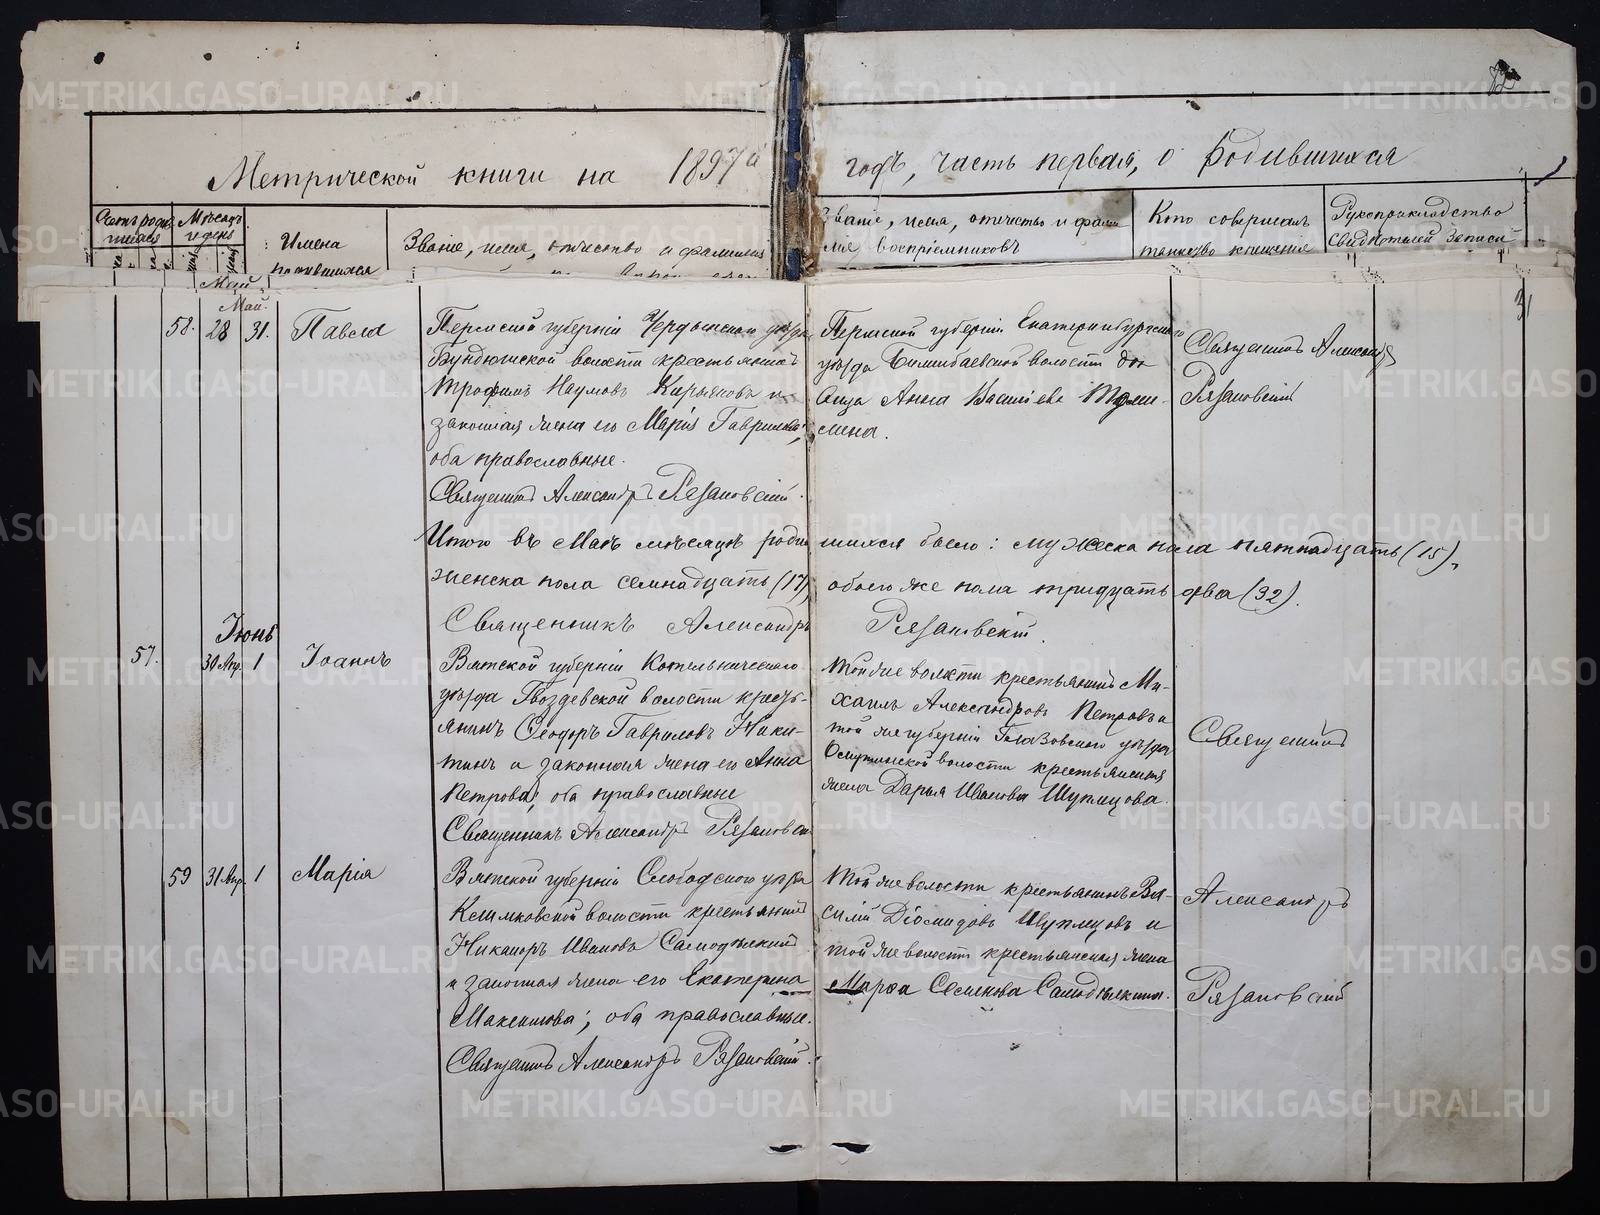 Метрической книги на 1897й
годъ, часть первая, о родившихся
Счетъ родив
шихся
Мѣсяцъ
и день
Имена
родившихся
Званіе, имя, отчество и фамилия
Званіе, имя, отчество и фами
лия воспріемниковъ
Кто совершалъ
таинство крещенія
Рукоприкладство
свидѣтелей записи
Май
Май.
31
58. 28 31. Павла
Пермской губерніи Чердынскаго уѣзда
Бундюжской волости крестьянинъ
Трофимъ Наумовъ Кирьяновъ и
законная жена его Марія Гаврилова;
оба православные.
Священникъ Александръ Рязановскій.
Пермской губерніи Екатеринбургскаго
уѣзда Билимбаевской волости
Анна Васильева
Священникъ Александръ
Рязановскій
Итого въ Маѣ мѣсяцѣ родив
шихся было: мужеска пола пятнадцать (15),
женска пола семнадцать (17)
обоего же пола тридцать два (32).
Священникъ Александръ
Рязановскій.
Іюнь
57. 30 Апр. 1 Іоаннъ
Вятской губерніи Котельническаго
уѣзда Гвоздевской волости кресть-
янинъ Ѳеодоръ Гавриловъ Ники-
тинъ и законная жена его Анна
Петрова; оба православные
Священникъ Александръ Рязановскій
Той же волости крестьянинъ Ми-
хаилъ Александровъ Петровъ и
той же губерніи Глазовскаго уѣзда
волости крестьянская
жена Дарья Иванова Шуплецова.
Священникъ
59 31 Апр. 1 Марія
Вятской губерніи Слободского уѣзда
волости крестьянинъ
Никаноръ Ивановъ Самодѣлкинъ
и законная жена его Екатерина
Максимова; оба православные.
Священникъ Александръ Рязановскій.
Той же волости крестьянинъ Ва-
силій Діомидовъ Шуплецовъ и
той же волости крестьянская жена
Марѳа Семенова Самодѣлкина.
Александръ
Рязановскій
METRIKI.GASO-URAL.RU